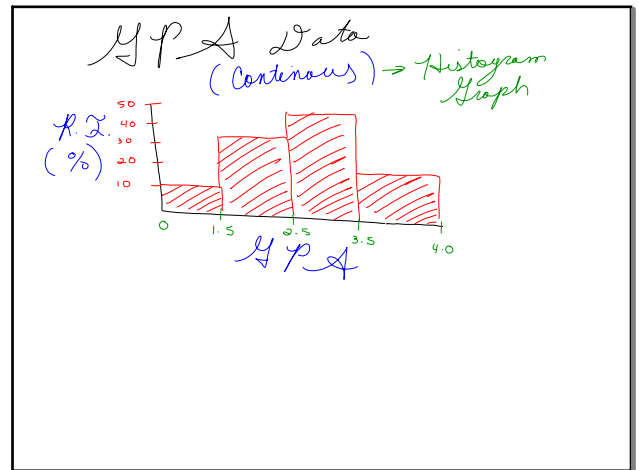 GPA Data
(Continous) → Histogram
Graph
R.F.
(%)
50
40
30
20
10
0 1.5 2.5 3.5 4.0
GPA